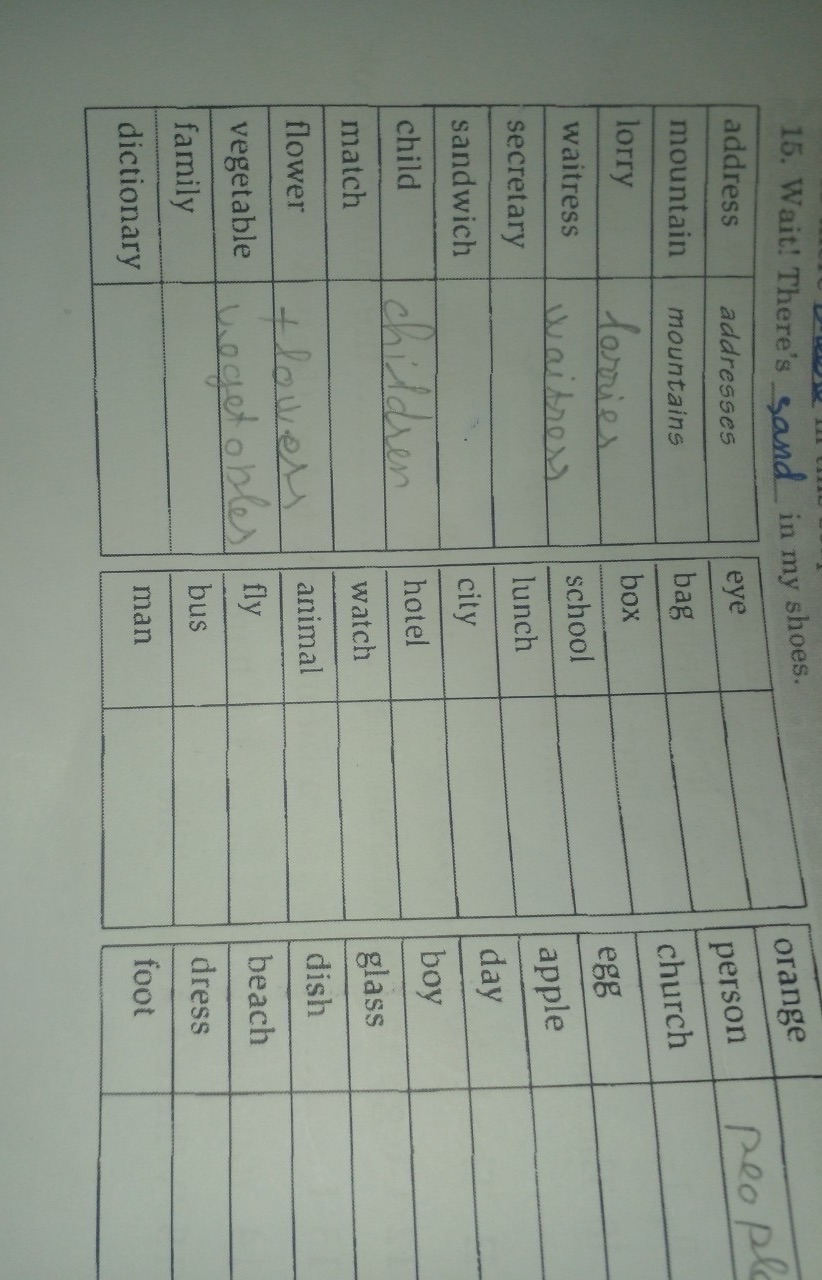 15. Wait! There's sand in my shoes.
address addresses
mountain mountains
lorry lorries
waitress waitress
secretary
sandwich
child children
match
flower flowers
vegetable vegetables
family
dictionary
eye
bag
box
school
lunch
city
hotel
watch
animal
fly
bus
man
orange
person
church
egg
apple
day
boy
glass
dish
beach
dress
foot